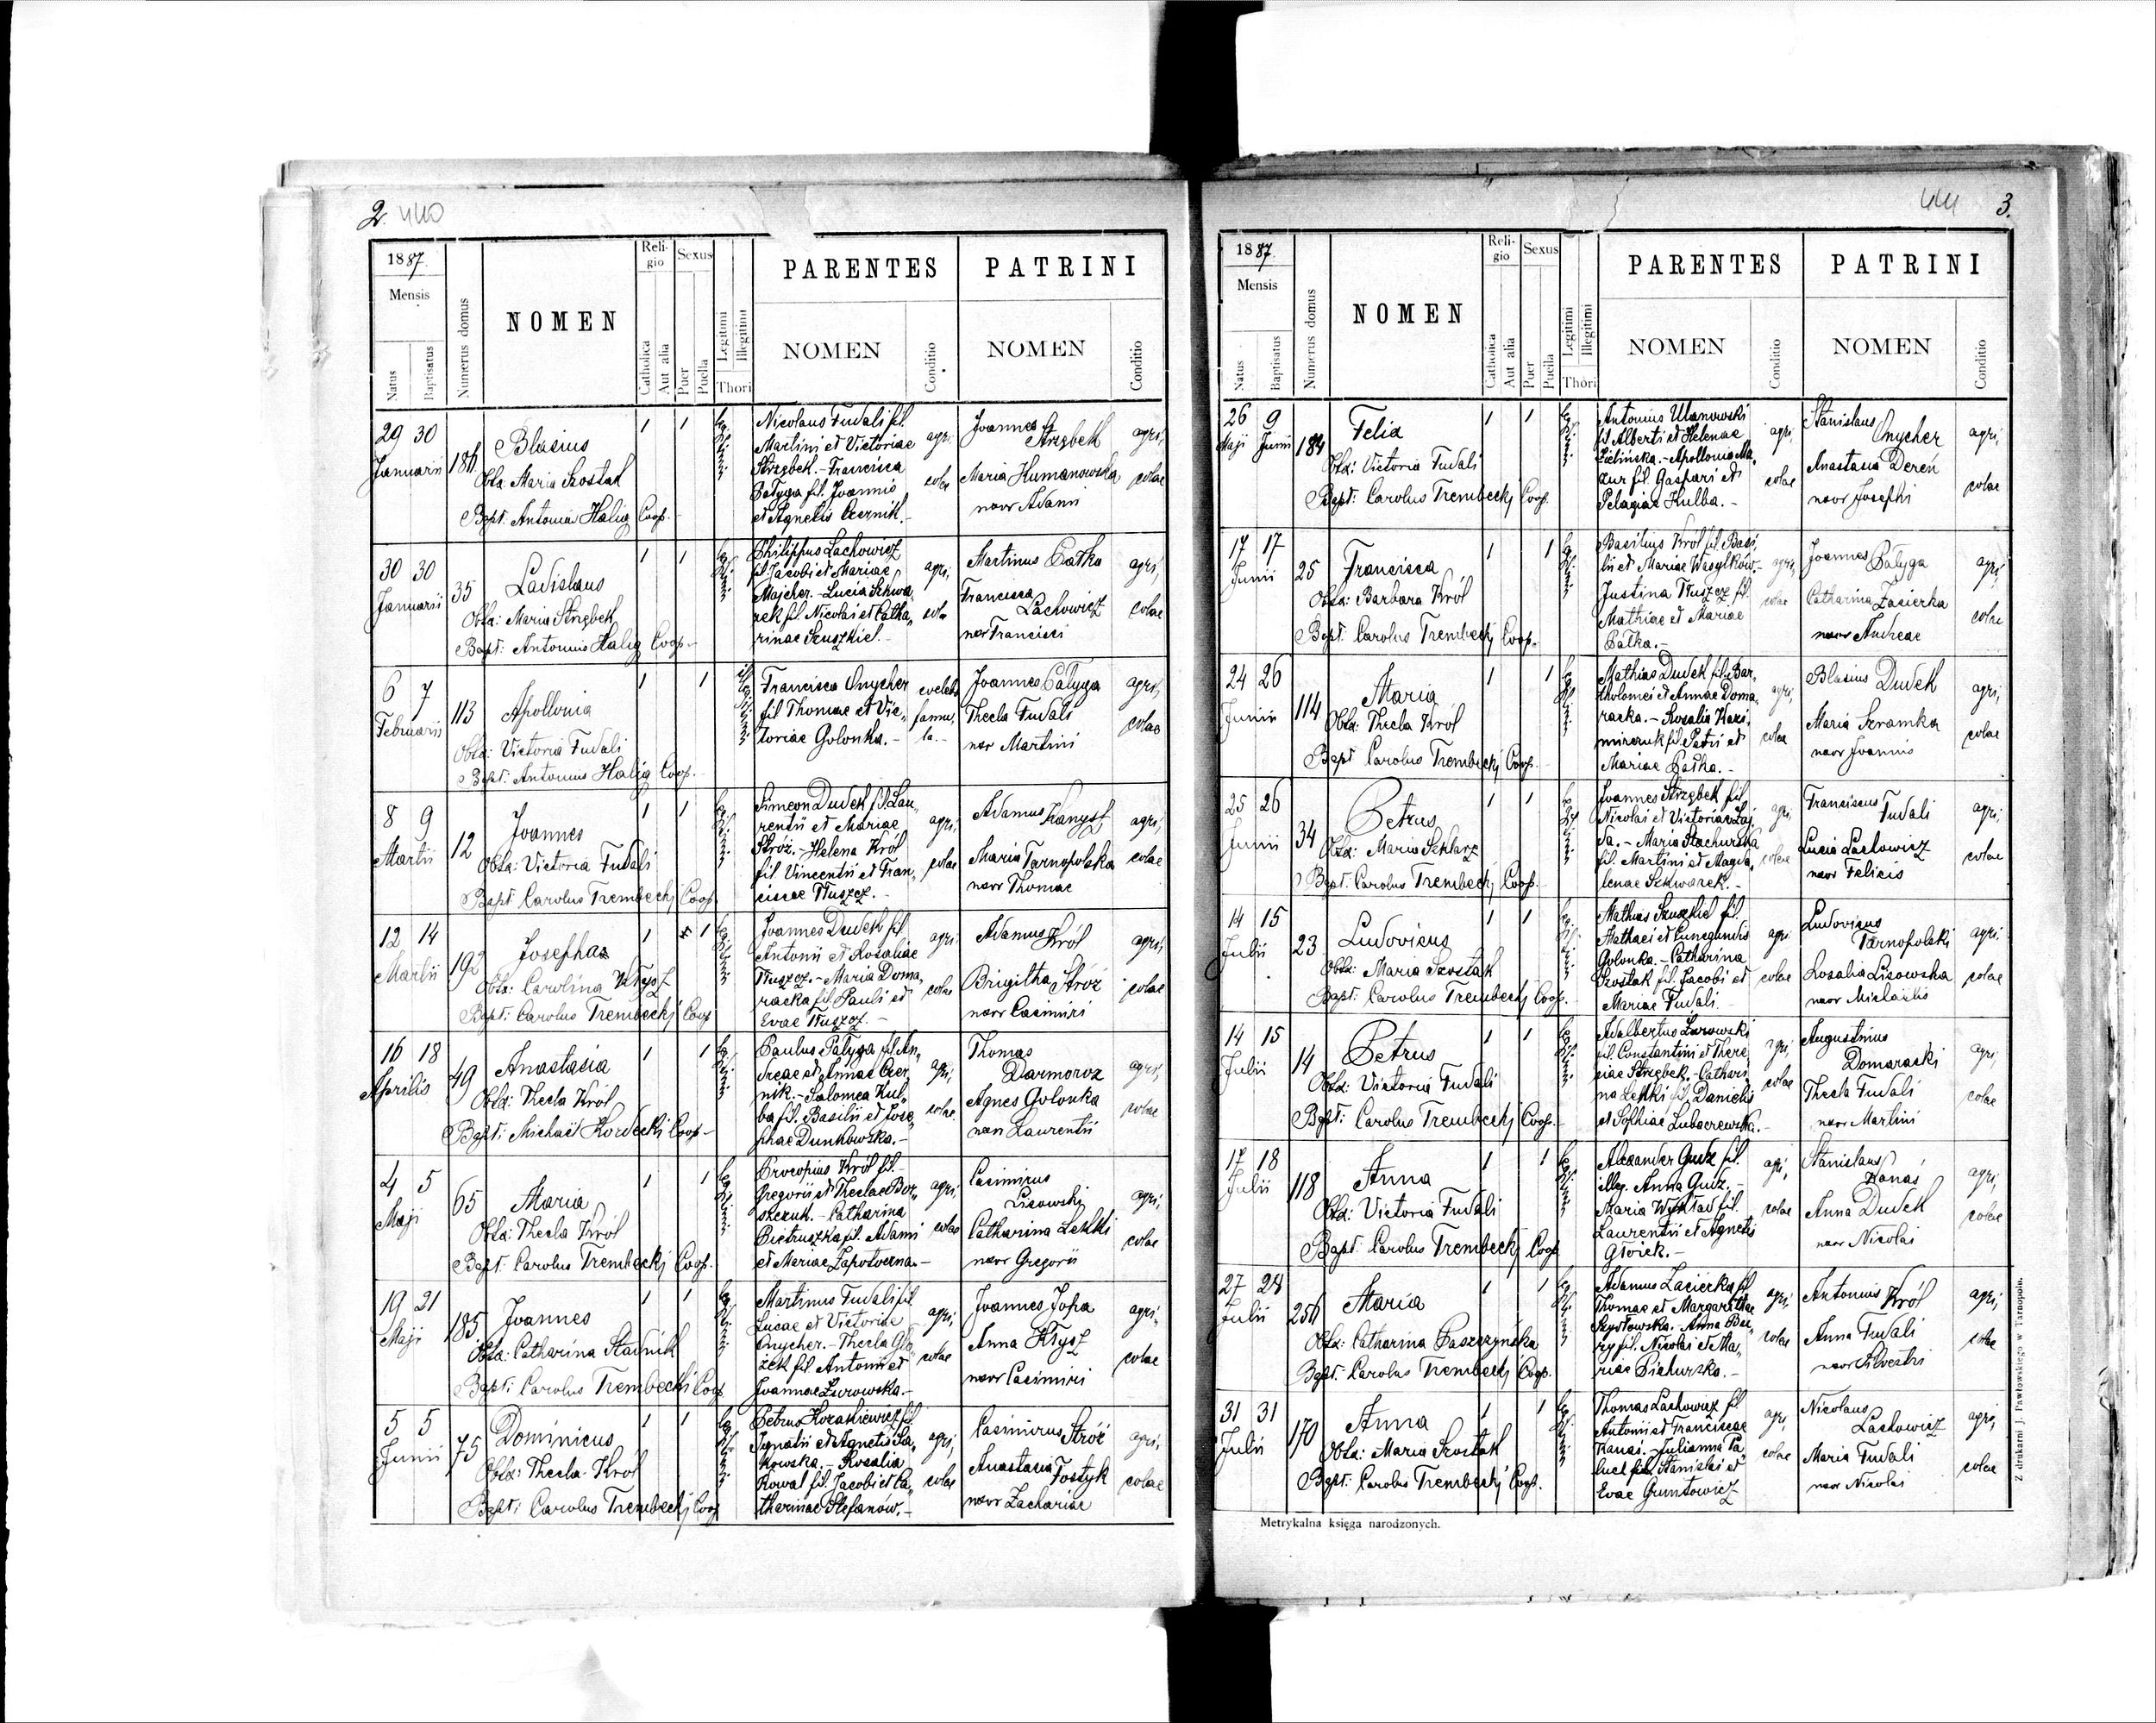 2. 440
1887.
Mensis
Natus
Baptisatus
Numerus domus
NOMEN
Religio
Catholica
Aut alia
Sexus
Puer
Puella
Legitimi
Illegitimi
Thori
PARENTES
NOMEN
Conditio
PATRINI
NOMEN
Conditio
29 30
Januarii
186
Blasius
Obst: Maria Szostak
Bapt. Antonius Halig Coop.
1 1
Nicolaus Fudali fil.
Martini et Victoriae
Strzębek. - Francisca
Patyga fil. Joannis
et Agnetis Czernik. -
agri,
colae
Joannes
Strzębek
Maria Humanowska
uxor Adami
agri,
colae
30 30
Januarii
35
Ladislaus
Obst: Maria Strzębek
Bapt: Antonius Halig Coop. -
1 1
Philippus Lachowicz
fil. Jacobi et Mariae
Majcher. - Lucia Szkwa-
rek fil. Nicolai et Catha-
rinae Szuszkiel. -
agri,
colae
Martinus Patka
Francisca
Lachowicz
uxor Francisci
agri,
colae
6 7
Februarii
113
Apollonia
Obst: Victoria Fudali
Bapt: Antonius Halig Coop. -
1 1
Francisca Onycher
fil Thomae et Vic-
toriae Golonka. -
famu,
la. -
Joannes Patyga
Thecla Fudali
uxor Martini
agri,
colae
8 9
Martii
12
Joannes
Obst: Victoria Fudali
Bapt: Carolus Trembecki Coop.
1 1
Simeon Dudek fil. Lau-
rentii et Mariae
Stróż. - Helena Król
fil Vincentii et Fran-
ciscae Tłuszcz. -
agri,
colae
Adamus
Maria Tarnopolska
uxor Thomae
agri,
colae
12 14
Martii
192
Josepha
Obst: Carolina
Bapt: Carolus Trembecki Coop
1 1
Joannes Dudek fil
Antonii et Rosaliae
Tłuszcz. - Maria Doma-
racka fil. Pauli et
Evae Tłuszcz. -
agri
colae
Adamus Król
Brigitha Stróż
uxor Casimiri
agri,
colae
16 18
Aprilis
49
Anastasia
Obst: Thecla Król
Bapt: Michaël Kordecki Coop -
1 1
Paulus Patyga fil. An-
dreae et Annae Czer-
nik. - Salomea Kul-
ba fil. Basilii et Jose-
phae Dunkowska. -
agri,
colae
Thomas
Darmoroz
Agnes Golonka
uxor Laurentii
agri,
colae
4 5
Maji
65
Maria
Obst: Thecla Król
Bapt: Carolus Trembecki Coop.
1 1
Procopius Król fil. -
Gregorii et Theclae Bor-
szczuk. - Catharina
Pietruszka fil. Adami
et Mariae
agri,
colae
Casimirus
Lisowski
Catharina Lekki
uxor Gregorii
agri,
colae
19 21
Maji
185
Joannes
Obst: Catharina Stadnik
Bapt: Carolus Trembecki Coop
1 1
Martinus Fudali fil
Lucae et Victoriae
Onycher. - Thecla
fil. Antonii et
Joannae Żurowska. -
agri,
colae
Joannes
Anna
uxor Casimiri
agri,
colae
5 5
Junii
75
Dominicus
Obst: Thecla Król
Bapt: Carolus Trembecki Coop
1 1
Petrus fil.
Ignatii et Agnetis
Rosalia
Kowal fil. Jacobi et Ca-
tharinae Stefanów. -
agri,
colae
Casimirus Stróż
Anastasia Fostyk
uxor Zachariae
agri,
colae
441 3.
1887.
Mensis
Natus
Baptisatus
Numerus domus
NOMEN
Religio
Catholica
Aut alia
Sexus
Puer
Puella
Legitimi
Illegitimi
Thori
PARENTES
NOMEN
Conditio
PATRINI
NOMEN
Conditio
26 9
Maji Junii
184
Felix
Obst: Victoria Fudali
Bapt: Carolus Trembecki Coop.
1 1
Antonius Ulanowski
fil Alberti et Helenae
Zielińska. - Apollonia Ma-
zur fil. Gaspari et
Pelagiae Kulba. -
agri,
colae
Stanislaus
Onycher
Anastasia Dereń
uxor Josephi
agri,
colae
17 17
Junii
25
Francisca
Obst: Barbara Król
Bapt: Carolus Trembecki Coop. -
1 1
Basilius Król fil. Basi-
lii et Mariae Wasylków. -
Justina Tłuszcz fil.
Mathiae et Mariae
Patka. -
agri,
colae
Joannes Patyga
Catharina Zacierka
uxor Andreae
agri,
colae
24 26
Junii
114
Maria
Obst: Thecla Król
Bapt: Carolus Trembecki Coop.
1 1
Mathias Dudek fil. Bar-
tholomei et Annae Doma-
racka. - Rosalia Kazi-
mirczuk fil. Petri et
Mariae Patka. -
agri,
colae
Blasius Dudek
Maria Szramka
uxor Joannis
agri,
colae
25 26
Junii
34
Petrus
Obst: Maria Szklarz
Bapt: Carolus Trembecki Coop.
1 1
Joannes Strzębek fil
Nicolai et Victoriae
Maria Stachurska
fil. Martini et Magda-
lenae Szkwarek. -
agri,
colae
Franciscus
Fudali
Lucia Lachowicz
uxor Felicis
agri,
colae
14 15
Julii
23
Ludovicus
Obst: Maria Szostak
Bapt: Carolus Trembecki Coop.
1 1
Mathias Szuszkiel fil.
Mathaei et Cunegundis
Golonka. - Catharina
Szostak fil. Jacobi et
Mariae Fudali. -
agri
colae
Ludovicus
Tarnopolski
Rosalia Lisowska
uxor Michaëlis
agri,
colae
14 15
Julii
14
Petrus
Obst: Victoria Fudali
Bapt: Carolus Trembecki Coop.
1 1
Adalbertus Żurowski
fil. Constantini et There-
siae Strzębek. - Cathari-
na Lekki fil. Danielis
et Sophiae Lubaczewska. -
agri,
colae
Augustinus
Domaracki
Thecla Fudali
uxor Martini
agri,
colae
17 18
Julii
118
Anna
Obst: Victoria Fudali
Bapt: Carolus Trembecki Coop
1 1
Alexander Gudz fil.
illeg. Anna Gudz. -
Maria Wykład fil.
Laurentii et Agnetis
agri,
colae
Stanislaus
Anna Dudek
uxor Nicolai
agri,
colae
27 28
Julii
256
Maria
Obst: Catharina Paszczyńska
Bapt: Carolus Trembecki Coop.
1 1
Adamus Zacierka fil
Thomae et Margarithae
Szydłowska. - Anna
fil. Nicolai et Ma-
riae
agri,
colae
Antonius Król
Anna Fudali
uxor Silvestri
agri,
colae
31 31
Julii
170
Anna
Obst: Maria Szostak
Bapt: Carolus Trembecki Coop.
1 1
Thomas Lachowicz fil
Antonii et Franciscae
Kanas. - Julianna
fil. Stanislai et
Evae Guntowicz
agri,
colae
Nicolaus
Lachowicz
Maria Fudali
uxor Nicolai
agri,
colae
Metrykalna księga narodzonych.
Z drukarni J. Pawłowskiego w Tarnopolu.